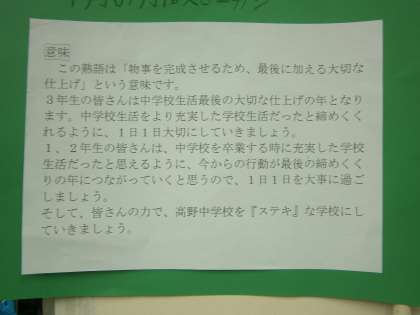 意味
この熟語は「物事を完成させるため、最後に加える大切な
仕上げ」という意味です。
３年生の皆さんは中学校生活最後の大切な仕上げの年となり
ます。中学校生活をより充実した学校生活だったと締めくく
れるように、１日１日大切にしていきましょう。
１、２年生の皆さんは、中学校を卒業する時に充実した学校
生活だったと思えるように、今からの行動が最後の締めくく
りの年につながっていくと思うので、１日１日を大事に過ご
しましょう。
そして、皆さんの力で、高野中学校を『ステキ』な学校にし
ていきましょう。